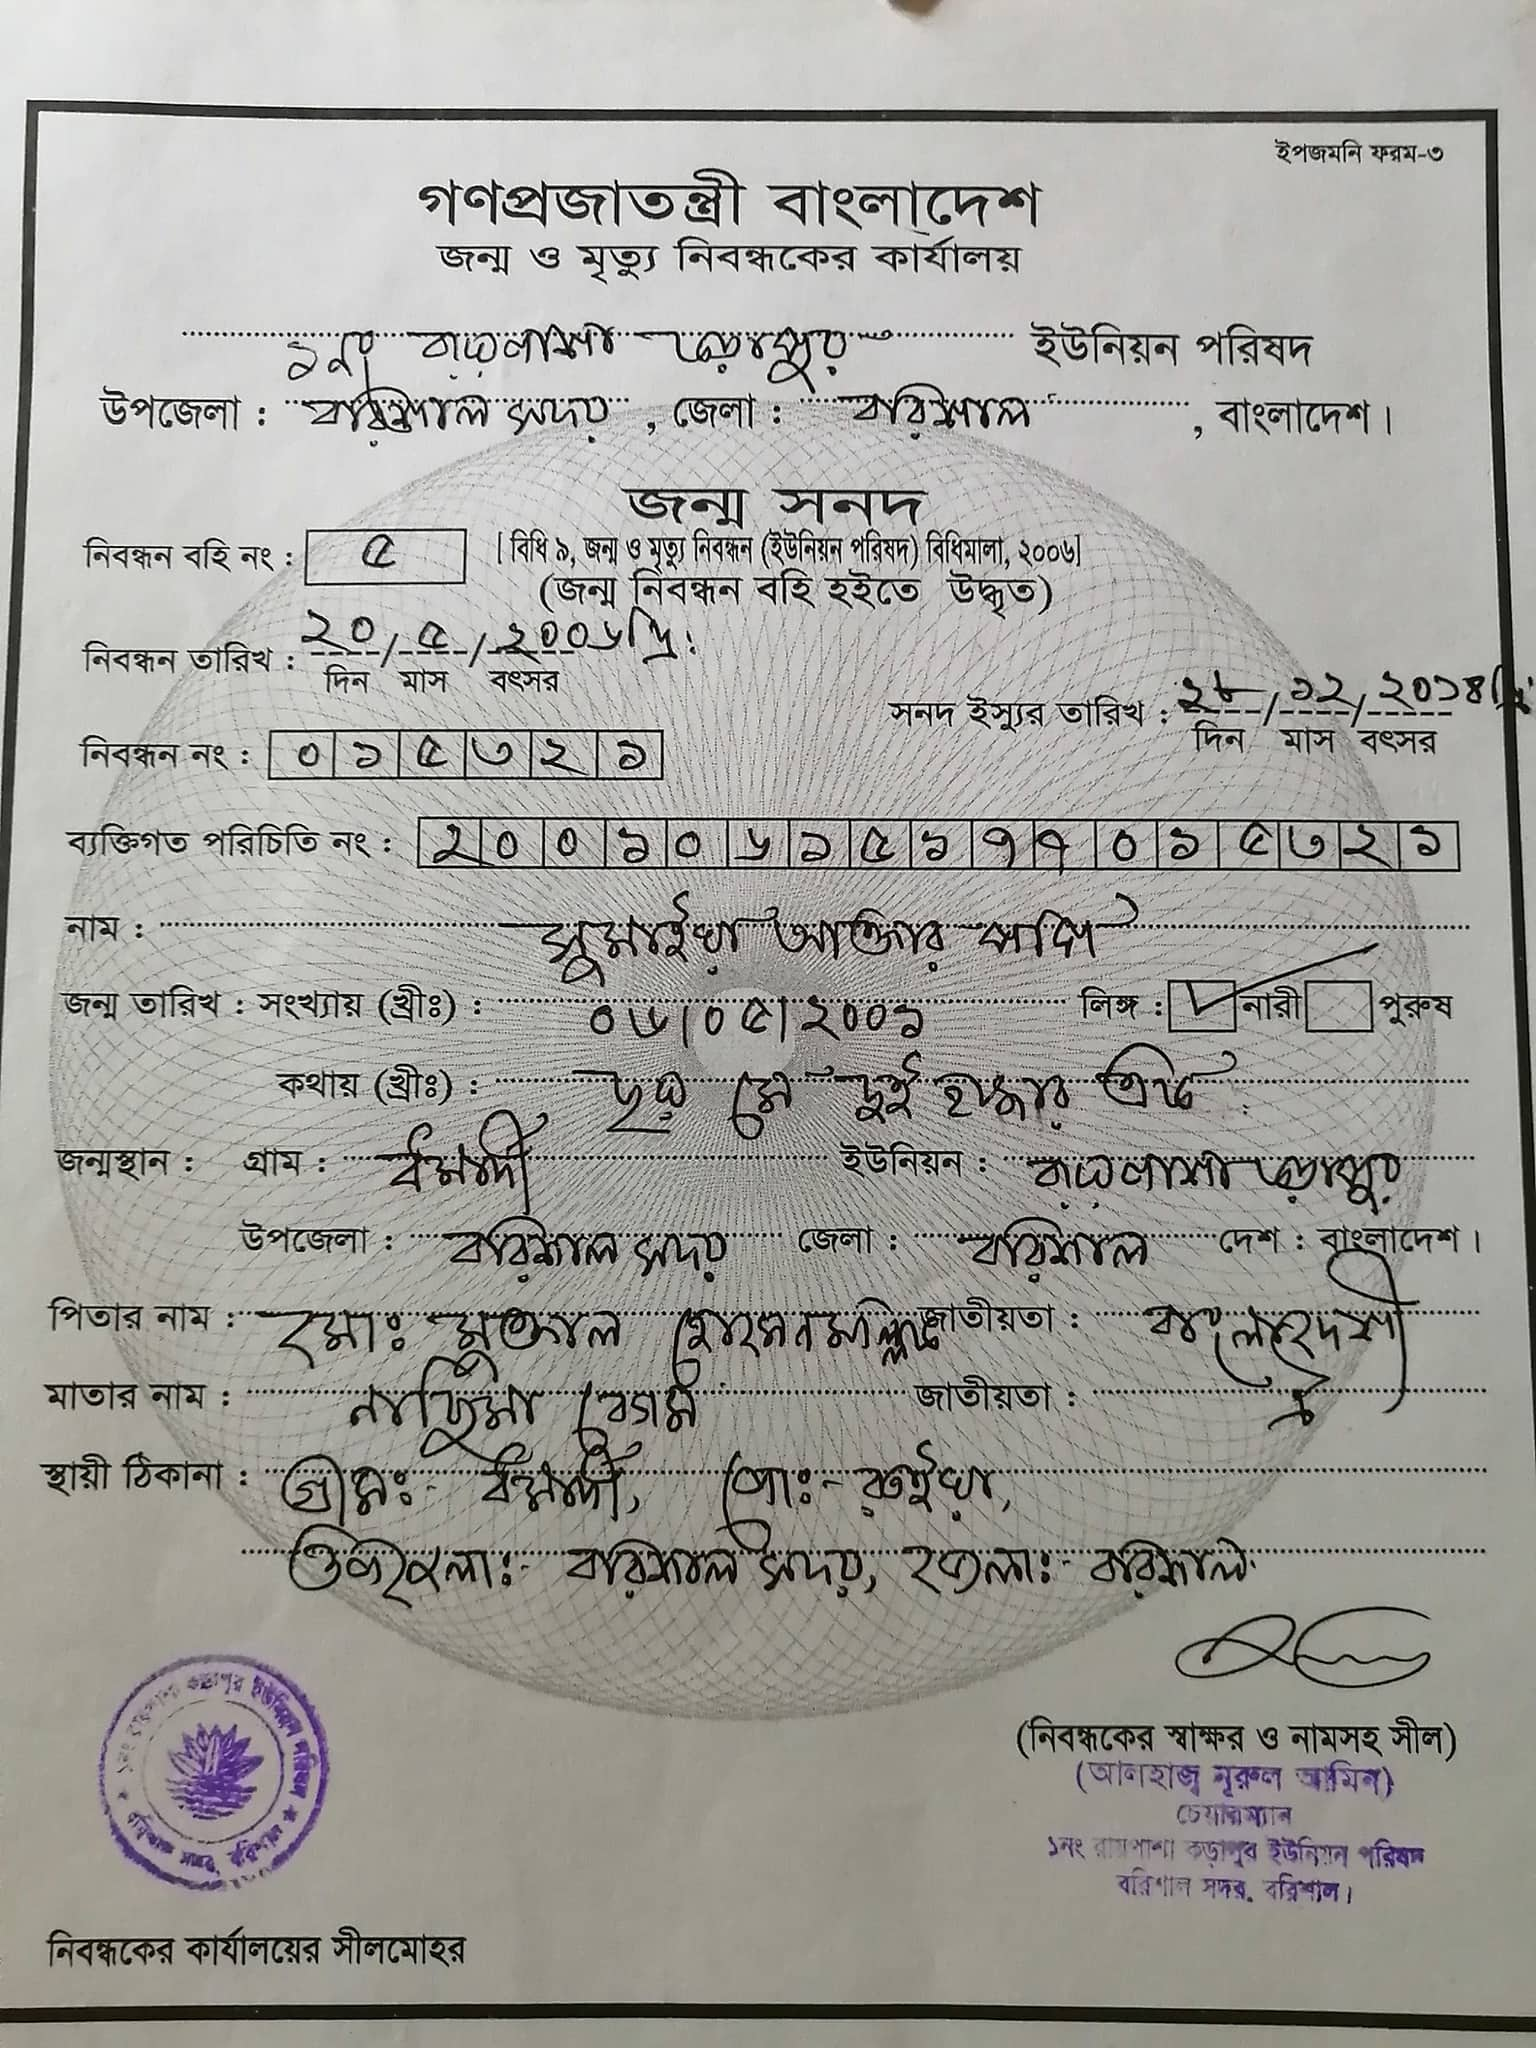 ইপজমনি ফরম-৩
গণপ্রজাতন্ত্রী বাংলাদেশ
জন্ম ও মৃত্যু নিবন্ধকের কার্যালয়
১নং রায়পাশা কড়াপুর ইউনিয়ন পরিষদ
উপজেলা : বরিশাল সদর , জেলা : বরিশাল , বাংলাদেশ।
জন্ম সনদ
নিবন্ধন বহি নং : ৫ [ বিধি ৯, জন্ম ও মৃত্যু নিবন্ধন (ইউনিয়ন পরিষদ) বিধিমালা, ২০০৬]
(জন্ম নিবন্ধন বহি হইতে উদ্ধৃত)
নিবন্ধন তারিখ : ২০/৫/২০০৬খ্রি:
দিন মাস বৎসর
সনদ ইস্যুর তারিখ : ২৮/১২/২০১৪খ্রি:
দিন মাস বৎসর
নিবন্ধন নং : ০১৫৩২১
ব্যক্তিগত পরিচিতি নং : ২০০১০৬১৫১৭৭০১৫৩২১
নাম : সুমাইয়া আক্তার
জন্ম তারিখ : সংখ্যায় (খ্রীঃ) : ০৬/০৫/২০০১ লিঙ্গ : নারী পুরুষ
কথায় (খ্রীঃ) : ছয় মে দুই হাজার এক
জন্মস্থান : গ্রাম : ইউনিয়ন : রায়পাশা কড়াপুর
উপজেলা : বরিশাল সদর জেলা : বরিশাল দেশ : বাংলাদেশ।
পিতার নাম : মোঃ হোসেন মোল্লা জাতীয়তা : বাংলাদেশী
মাতার নাম : নাজমা বেগম জাতীয়তা : ঐ
স্থায়ী ঠিকানা : গ্রামঃ- পোঃ-
উপজেলাঃ- বরিশাল সদর, জেলাঃ- বরিশাল
(নিবন্ধকের স্বাক্ষর ও নামসহ সীল)
(আলহাজ্ব নূরুল আমিন)
চেয়ারম্যান
১নং রায়পাশা কড়াপুর ইউনিয়ন পরিষদ
বরিশাল সদর, বরিশাল।
১নং রায়পাশা কড়াপুর ইউনিয়ন পরিষদ
বরিশাল সদর, বরিশাল
নিবন্ধকের কার্যালয়ের সীলমোহর